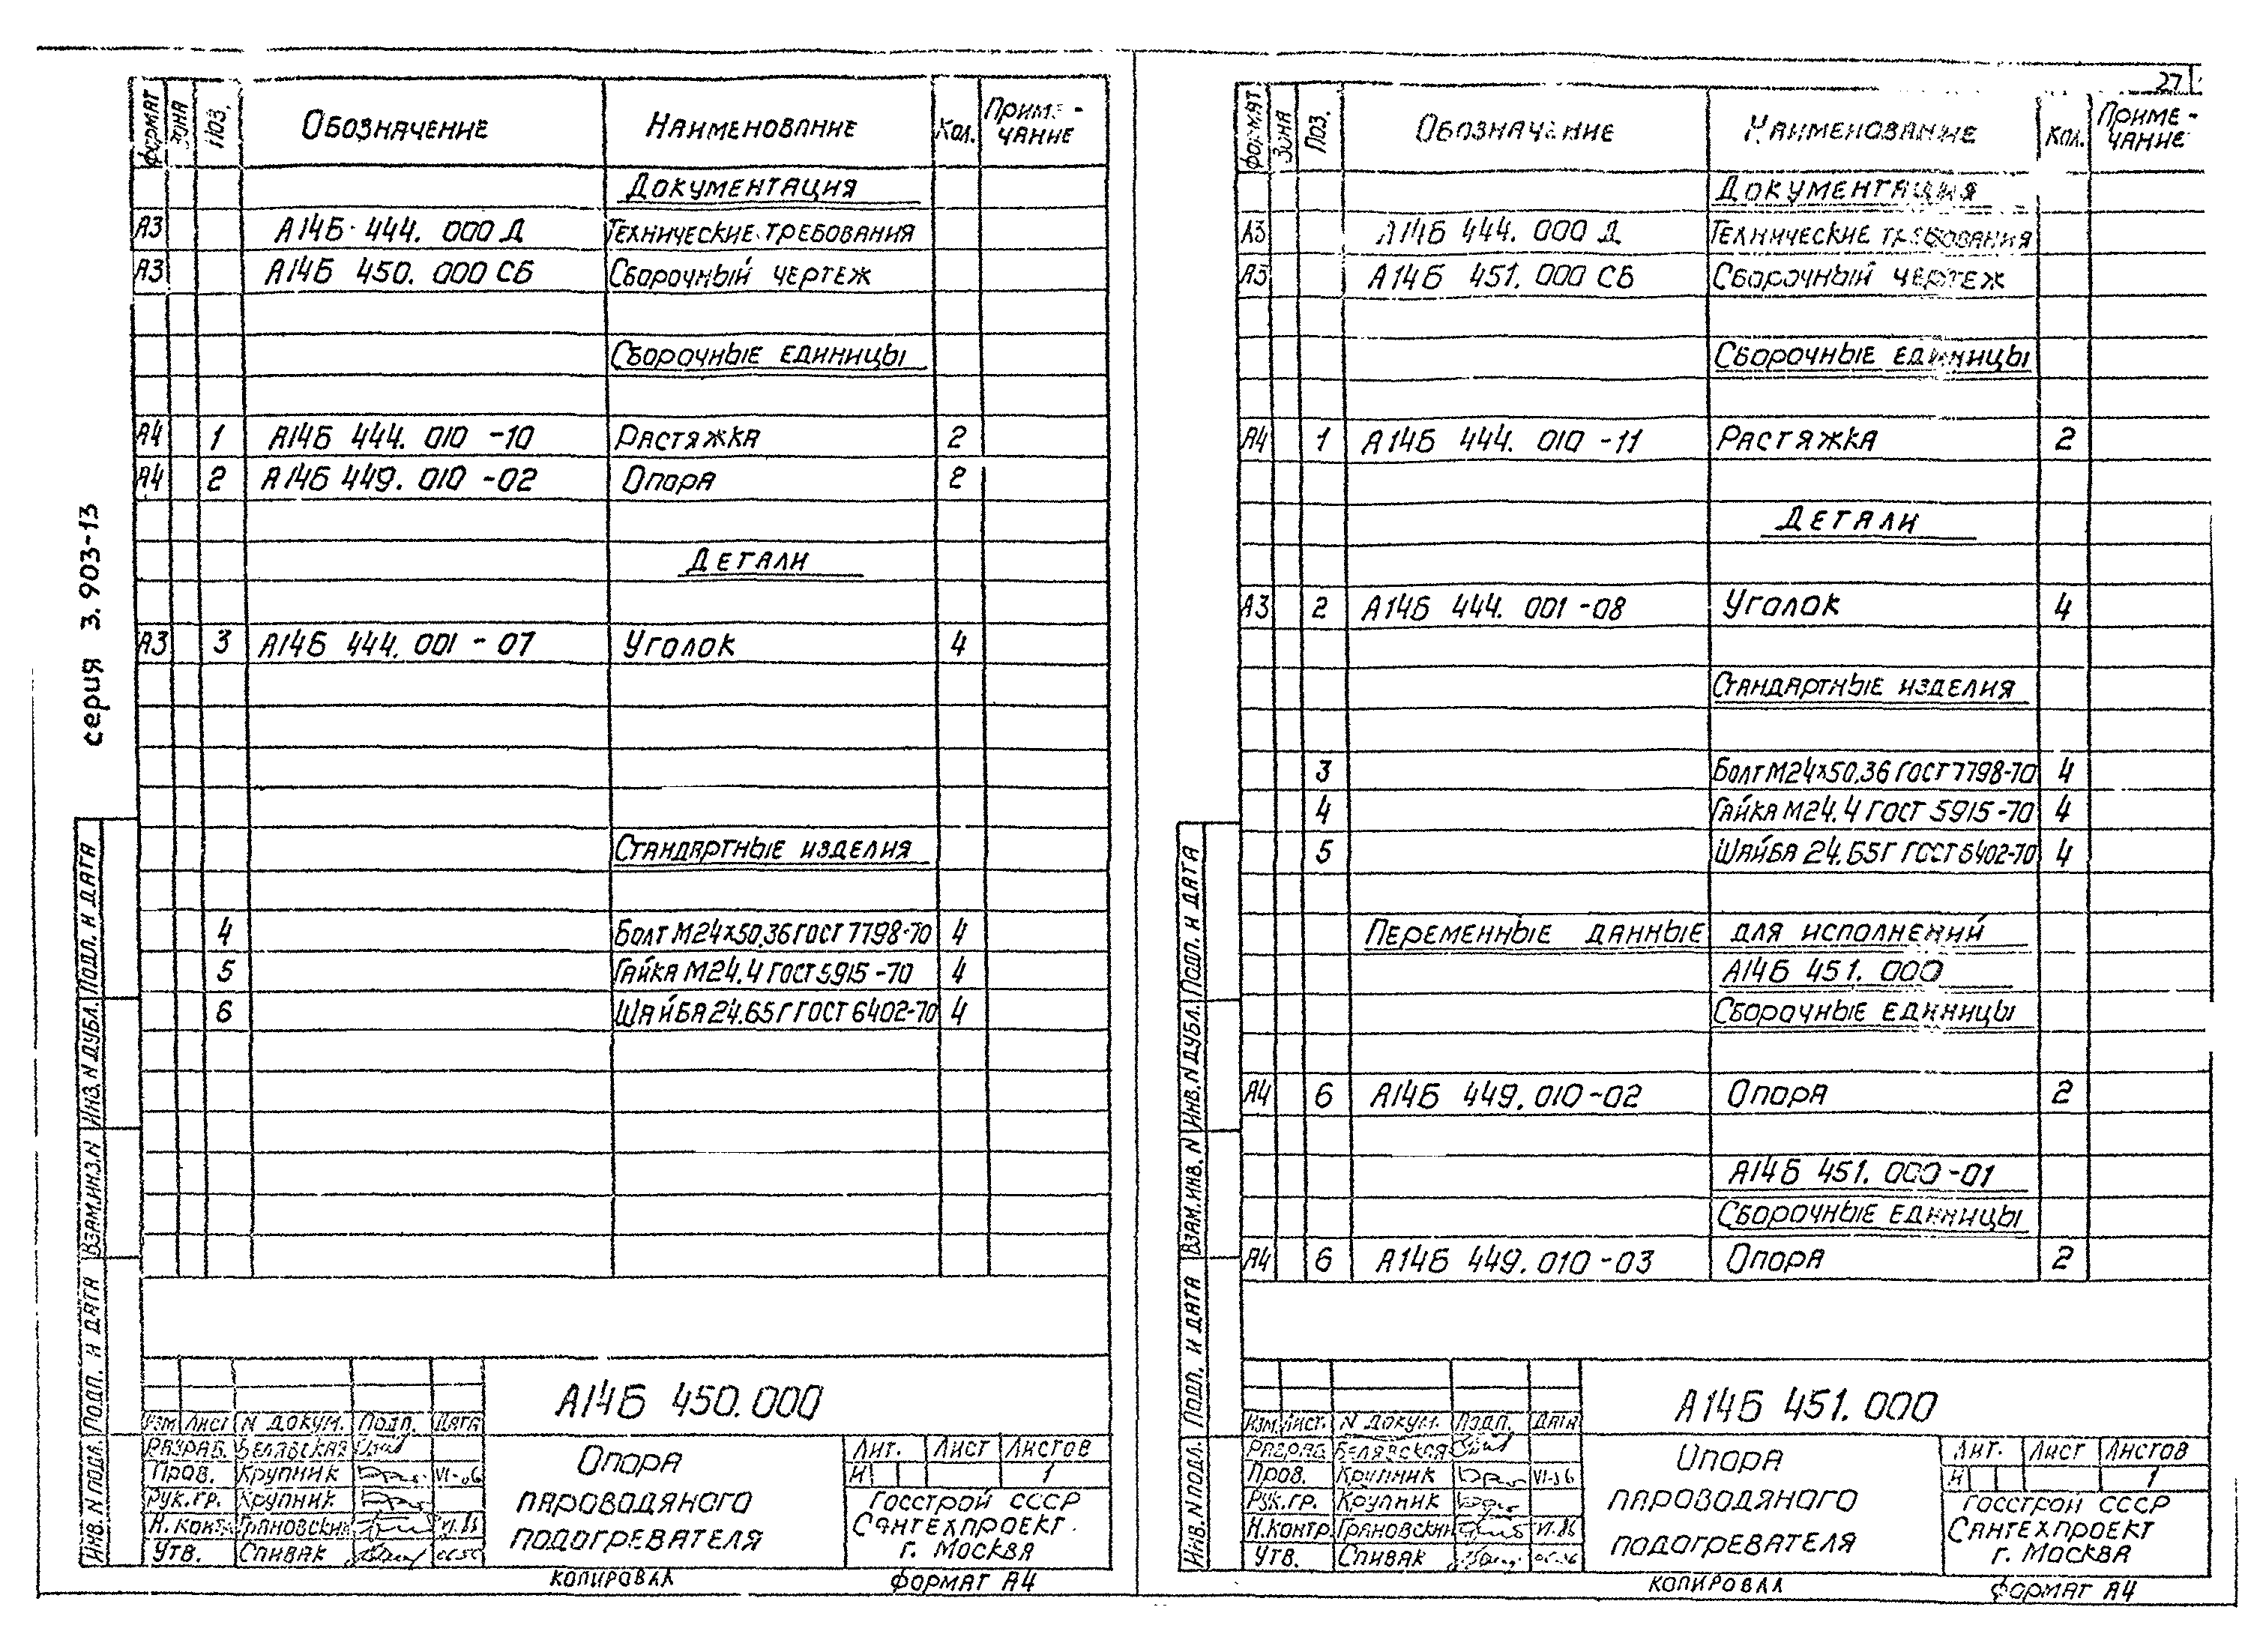 27
серия 3.903-13
Формат Зона Поз. Обозначение Наименование Кол. Приме-
чание
Документация
А3 А14Б 444. 000 Д Технические требования
А3 А14Б 450. 000 СБ Сборочный чертеж
Сборочные единицы
А4 1 А14Б 444. 010 -10 Растяжка 2
А4 2 А14Б 449. 010 -02 Опора 2
Детали
А3 3 А14Б 444. 001 - 07 Уголок 4
Стандартные изделия
4 Болт М24х50.36 ГОСТ 7798-70 4
5 Гайка М24.4 ГОСТ 5915-70 4
6 Шайба 24.65Г ГОСТ 6402-70 4
Инв. N подл. Подп. и дата Взам.инв.N Инв. N дубл. Подп. и дата
А14Б 450.000
Изм Лист N докум. Подп. Дата
Разраб. Белявская
Пров. Крупник
Рук.гр. Крупник
Н. контр Грановский
Утв. Спивак
Опора
пароводяного
подогревателя
Лит. Лист Листов
И 1
Госстрой СССР
Сантехпроект
г. Москва
Копировал Формат А4
Формат Зона Поз. Обозначение Наименование Кол. Приме-
чание
Документация
А3 А14Б 444. 000 Д Технические требования
А3 А14Б 451. 000 СБ Сборочный чертеж
Сборочные единицы
А4 1 А14Б 444. 010 -11 Растяжка 2
Детали
А3 2 А14Б 444. 001 -08 Уголок 4
Стандартные изделия
3 Болт М24х50.36 ГОСТ 7798-70 4
4 Гайка М24.4 ГОСТ 5915-70 4
5 Шайба 24.65Г ГОСТ 6402-70 4
Переменные данные для исполнений
А14Б 451. 000
Сборочные единицы
А4 6 А14Б 449.010-02 Опора 2
А14Б 451. 000-01
Сборочные единицы
А4 6 А14Б 449.010-03 Опора 2
Инв. N подл. Подп. и дата Взам.инв. N Инв.N дубл. Подп. и дата
А14Б 451.000
Изм. Лист. N докум. Подп. Дата
Разраб. Белявская
Пров. Крупник
Рук.гр. Крупник
Н.контр. Грановский
Утв. Спивак
Опора
пароводяного
подогревателя
Лит. Лист Листов
И 1
Госстрой СССР
Сантехпроект
г. Москва
Копировал Формат А4